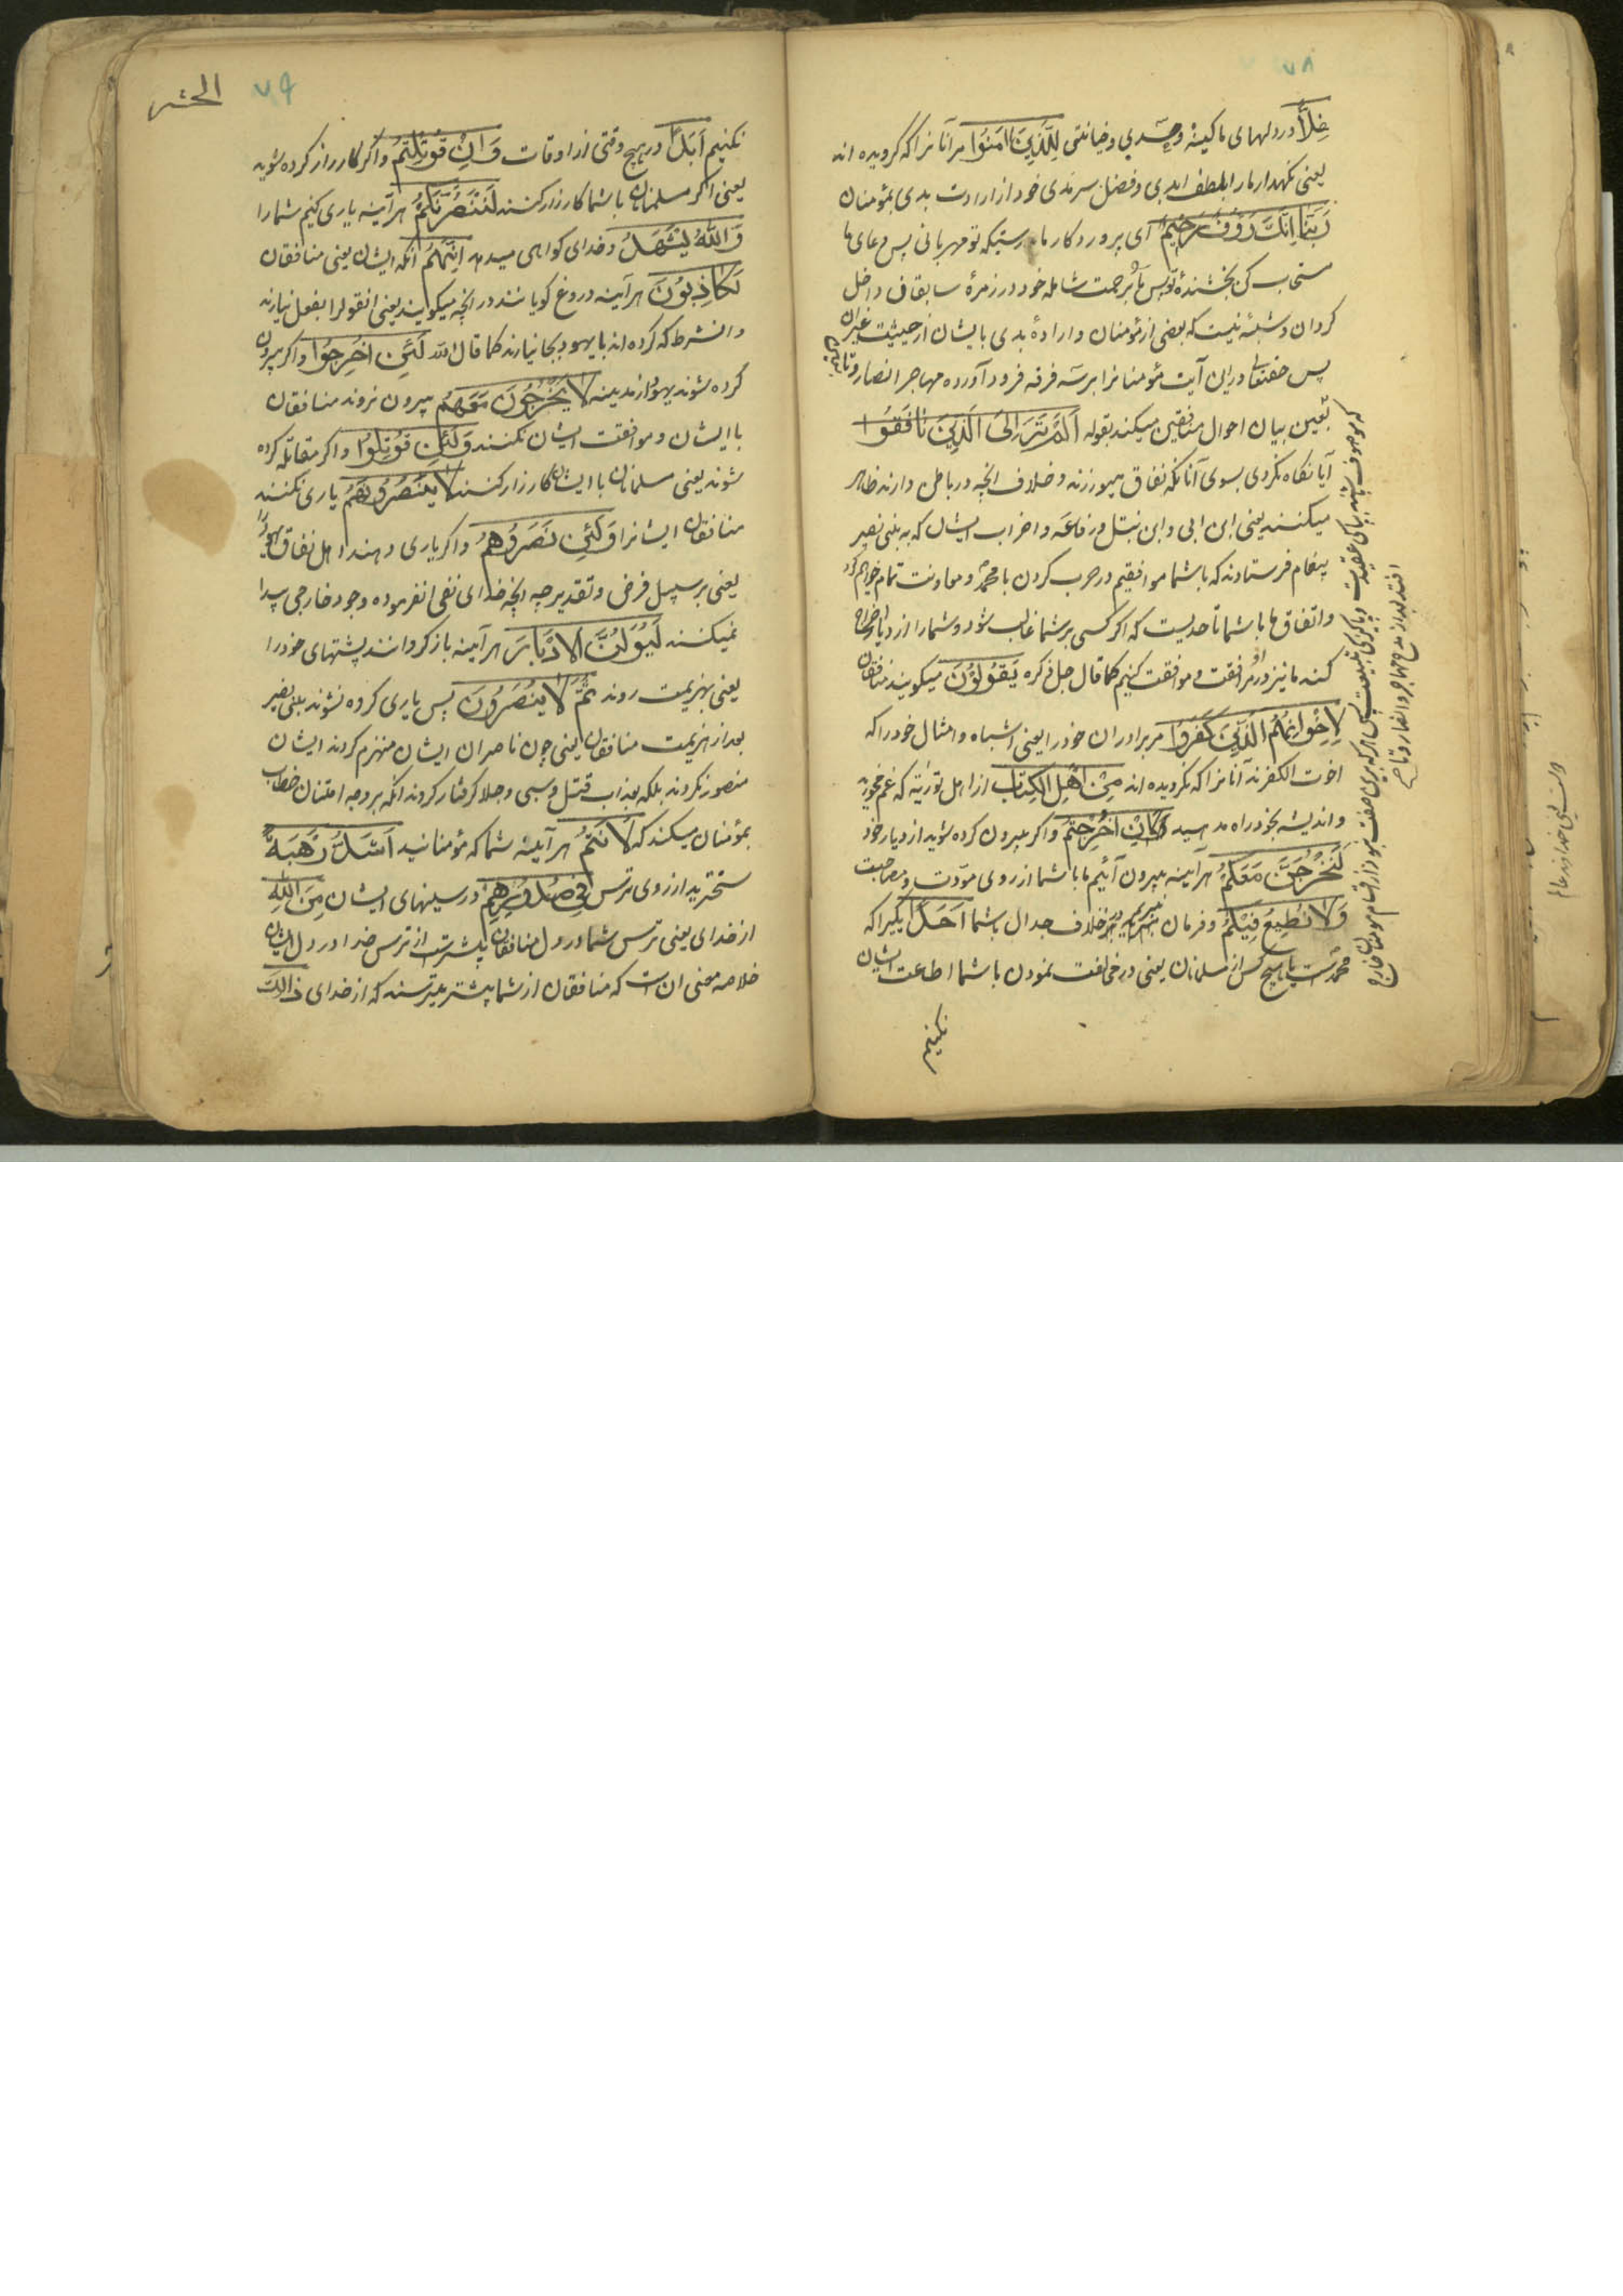 ۷۸
غِلًّا در دلهای ما کینهٔ و حسدی و خیانتی لِلَّذِینَ اٰمَنُوا مر آنانرا که گرویده اند
یعنی نکهدار ما را بلطف ابدی و فضل سرمدی خود از ارادت بدی بمؤمنان
رَبَّنَا اِنَّكَ رَؤُفٌ رَحِیمٌ ای پروردکار ما بدرستیکه تو مهربانی پس دعای ما
مستجاب کن بخشندهٔ تو پس ما را برحمت شامله خود در زمرهٔ سابقان داخل
کردان و شبهٔ نیست که بعضی از مؤمنان و ارادهٔ بدی بایشان از حیثیت
پس حقتعالی در این آیت مؤمنانرا بر سه فرقه فرود آورده مهاجر انصار و تابعین
بیان احوال منافقین میکند بقوله اَلَمْ تَرَ اِلَی الَّذِینَ نَافَقُوا
آیا نکاه نکردی بسوی آنانکه نفاق میورزند و خلاف آنچه در باطن دارند ظاهر
میکنند یعنی ابن ابی و ابن نبتل و رفاعه و اضراب ایشان که به بنی نضیر
پیغام فرستادند که با شما موافقیم در حرب کردن با محمد و معاونت تمام خواهیم کرد
و اتفاق ما با شما تا حدیست که اگر کسی بر شما غالب شود و شما را از دیار اخراج
کند ما نیز در مرافقت و موافقت کنیم کما قال جل ذکره یَقُولُونَ میکویند منافقان
لِاِخْوَانِهِمُ الَّذِینَ کَفَرُوا مر برادران خود را یعنی اشباه و امثال خود را که
اخوت الکفرند آنانرا که نکرویده اند مِنْ اَهْلِ الْکِتَابِ از اهل توریة که غم مخورید
و اندیشه بخود راه مدهید لَئِنْ اُخْرِجْتُمْ و اکر بیرون کرده شوید از دیار خود
لَنَخْرُجَنَّ مَعَکُمْ هر آینه بیرون آئیم ما با شما از روی مودّت و مصاحبت
وَلَا نُطِیعُ فِیکُمْ و فرمان نبریم در خلاف جدال باشما اَحَدًا یکیرا که
محمدست یا هیچ کس از مسلمانان یعنی در مخالفت نمودن با شما اطاعت ایشان
نکنیم
۷۹
الحشر
نکنیم اَبَدًا در هیچ وقتی از اوقات وَاِنْ قُوتِلْتُمْ و اکر کارزار کرده شوید
یعنی اکر مسلمانان با شما کارزار کنند لَنَنْصُرَنَّکُمْ هر آینه یاری کنیم شما را
وَاللّٰهُ یَشْهَدُ و خدای کواهی میدهد اِنَّهُمْ آنکه ایشان یعنی منافقان
لَکَاذِبُونَ هر آینه دروغ کویانند در آنچه میکویند یعنی انقولرا بفعل نیارند
و انشرط که کرده اند با یهود بجا نیارند کما قال الله لَئِنْ اُخْرِجُوا و اکر بیرون
کرده شوند یهود از مدینه لَا یَخْرُجُونَ مَعَهُمْ بیرون نروند منافقان
با ایشان و موافقت ایشان نکنند وَلَئِنْ قُوتِلُوا و اکر مقاتله کرده
شوند یعنی مسلمانان با ایشان کارزار کنند لَا یَنْصُرُونَهُمْ یاری نکنند
منافقان ایشانرا وَلَئِنْ نَصَرُوهُمْ و اکر یاری دهند اهل نفاق یهود را
یعنی بر سبیل فرض و تقدیر چه آنچه خدای نفی انفرموده وجود خارجی پیدا
نمیکنند لَیُوَلُّنَّ الْاَدْبَارَ هر آینه باز کردانند پشتهای خود را
یعنی بهزیمت روند ثُمَّ لَا یُنْصَرُونَ پس یاری کرده نشوند بنی نضیر
بعد از هزیمت منافقان یعنی چون ناصران ایشان منهزم کردند ایشان
منصور نکردند بلکه بعذاب قتل و سبی و جلا کرفتار کردند آنکه بر وجه امتنان خطاب
بمؤمنان میکند که لَاَنْتُمْ هر آینه شما که مؤمنانید اَشَدُّ رَهْبَةً
سختترید از روی ترس فِی صُدُورِهِمْ در سینهای ایشان مِنَ اللّٰهِ
از خدای یعنی ترس شما در دل منافقان بیشترست از ترس خدا در دل ایشان
خلاصه معنی انست که منافقان از شما بیشتر میترسند که از خدای ذٰلِكَ